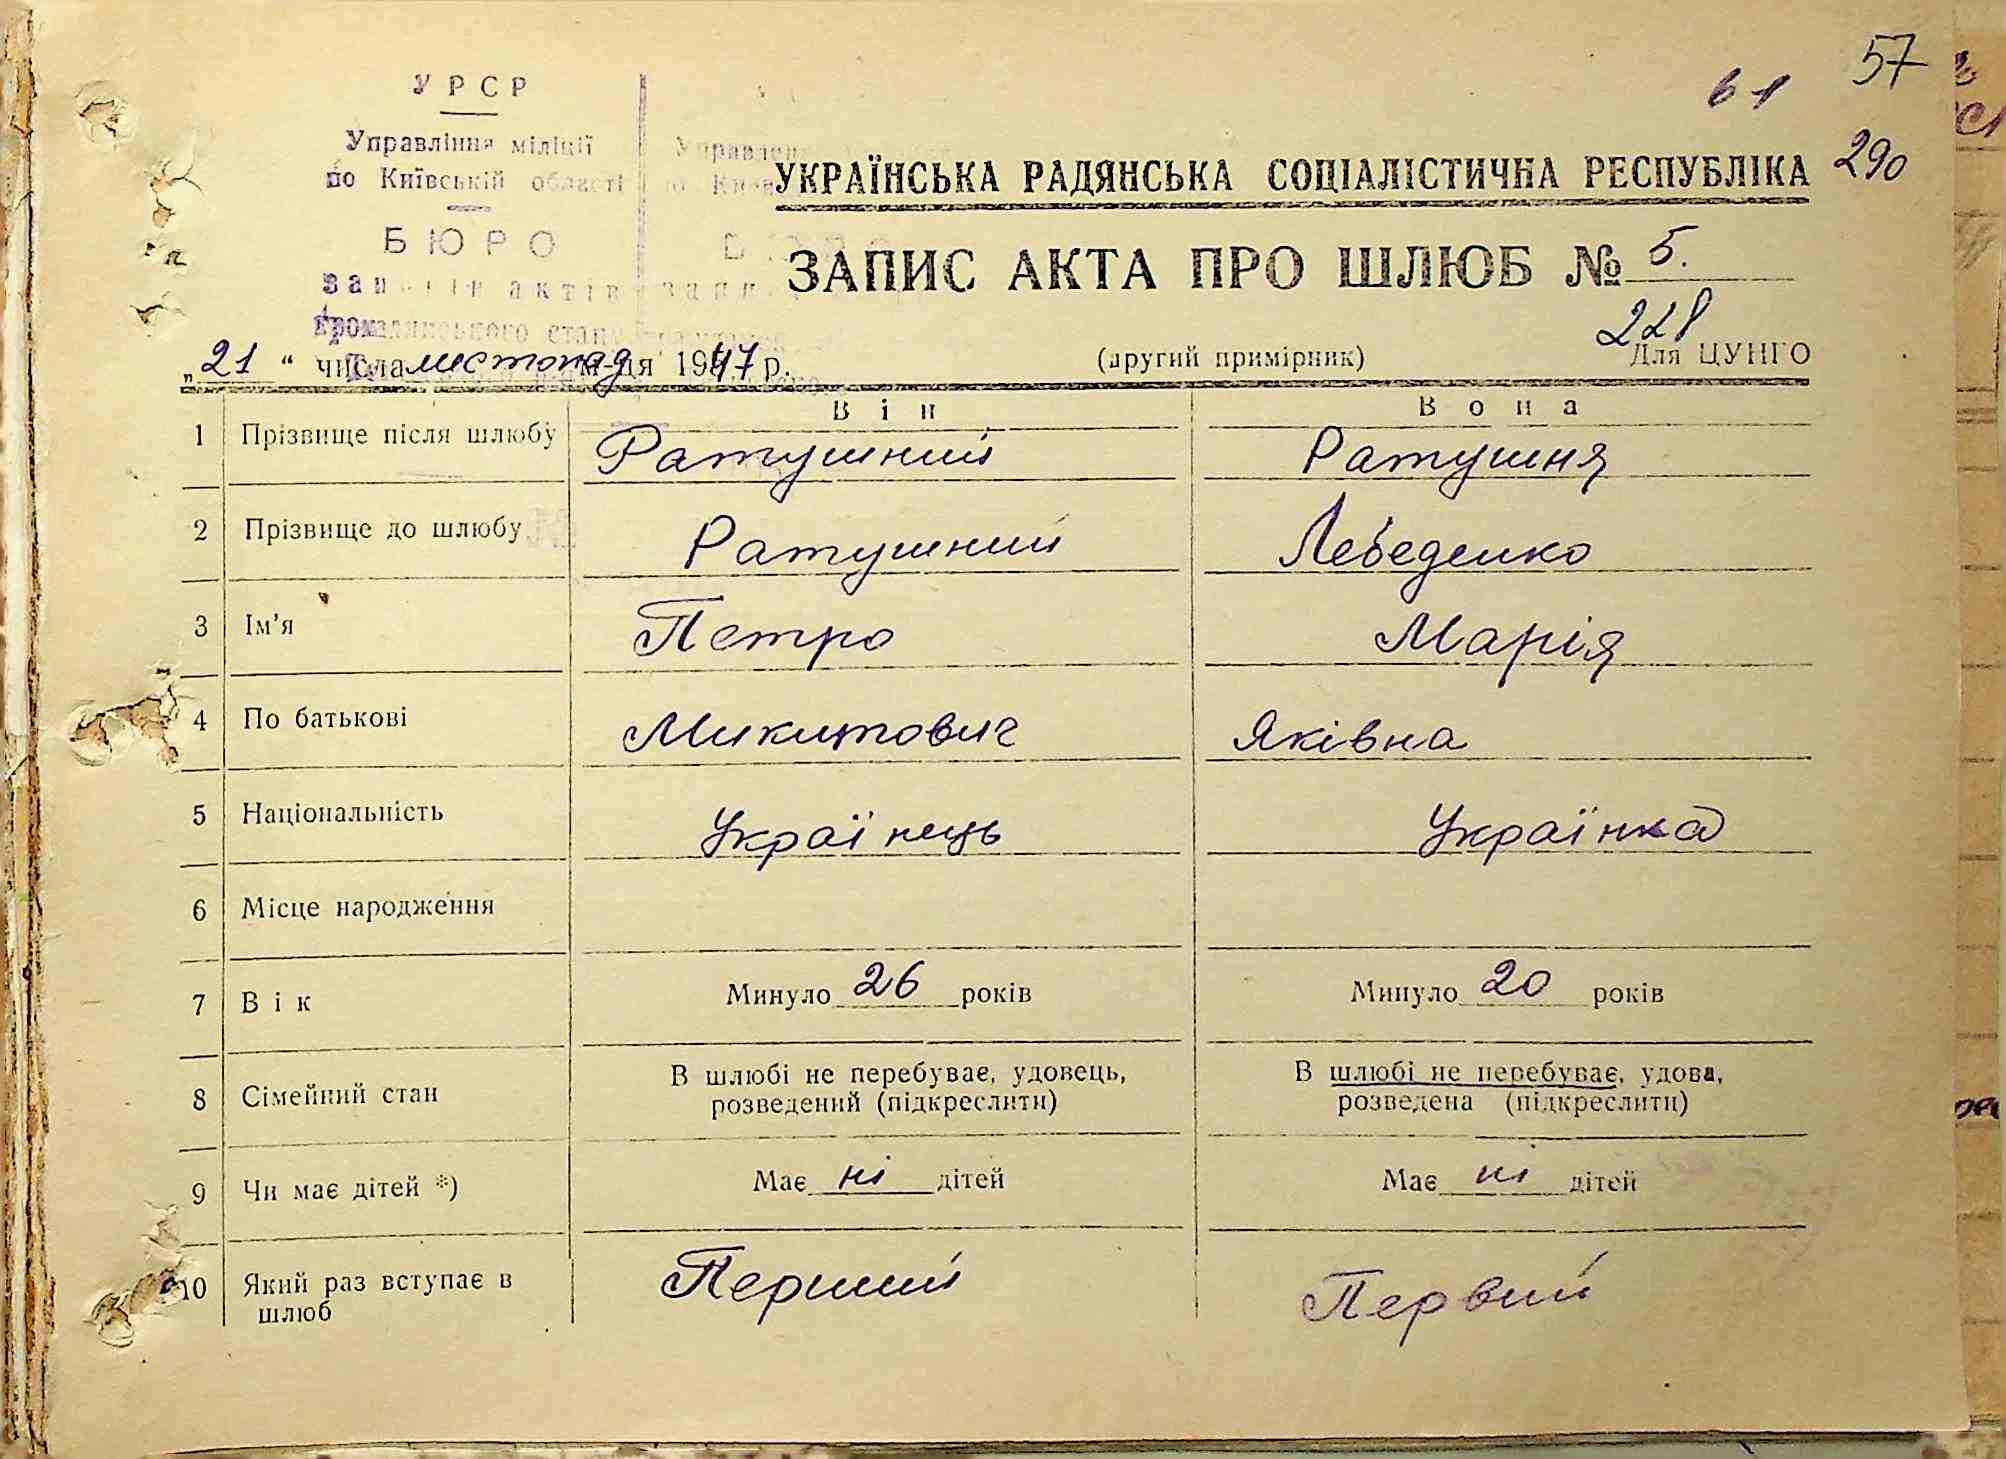 57
61
290
УРСР
Управління міліції
по Київській області
БЮРО
записів актів
громадянського стану
УКРАЇНСЬКА РАДЯНСЬКА СОЦІАЛІСТИЧНА РЕСПУБЛІКА
ЗАПИС АКТА ПРО ШЛЮБ № 5.
228
„21“ числа листопад м-ця 1947 р. (другий примірник) Для ЦУНГО
Він Вона
1 Прізвище після шлюбу Ратушний Ратушня
2 Прізвище до шлюбу Ратушний Лебеденко
3 Ім’я Петро Марія
4 По батькові Микитович Яківна
5 Національність Українець Українка
6 Місце народження
7 Вік Минуло 26 років Минуло 20 років
8 Сімейний стан В шлюбі не перебуває, удовець, В шлюбі не перебуває, удова,
розведений (підкреслити) розведена (підкреслити)
9 Чи має дітей *) Має ні дітей Має ні дітей
10 Який раз вступає в Перший Первий
шлюб